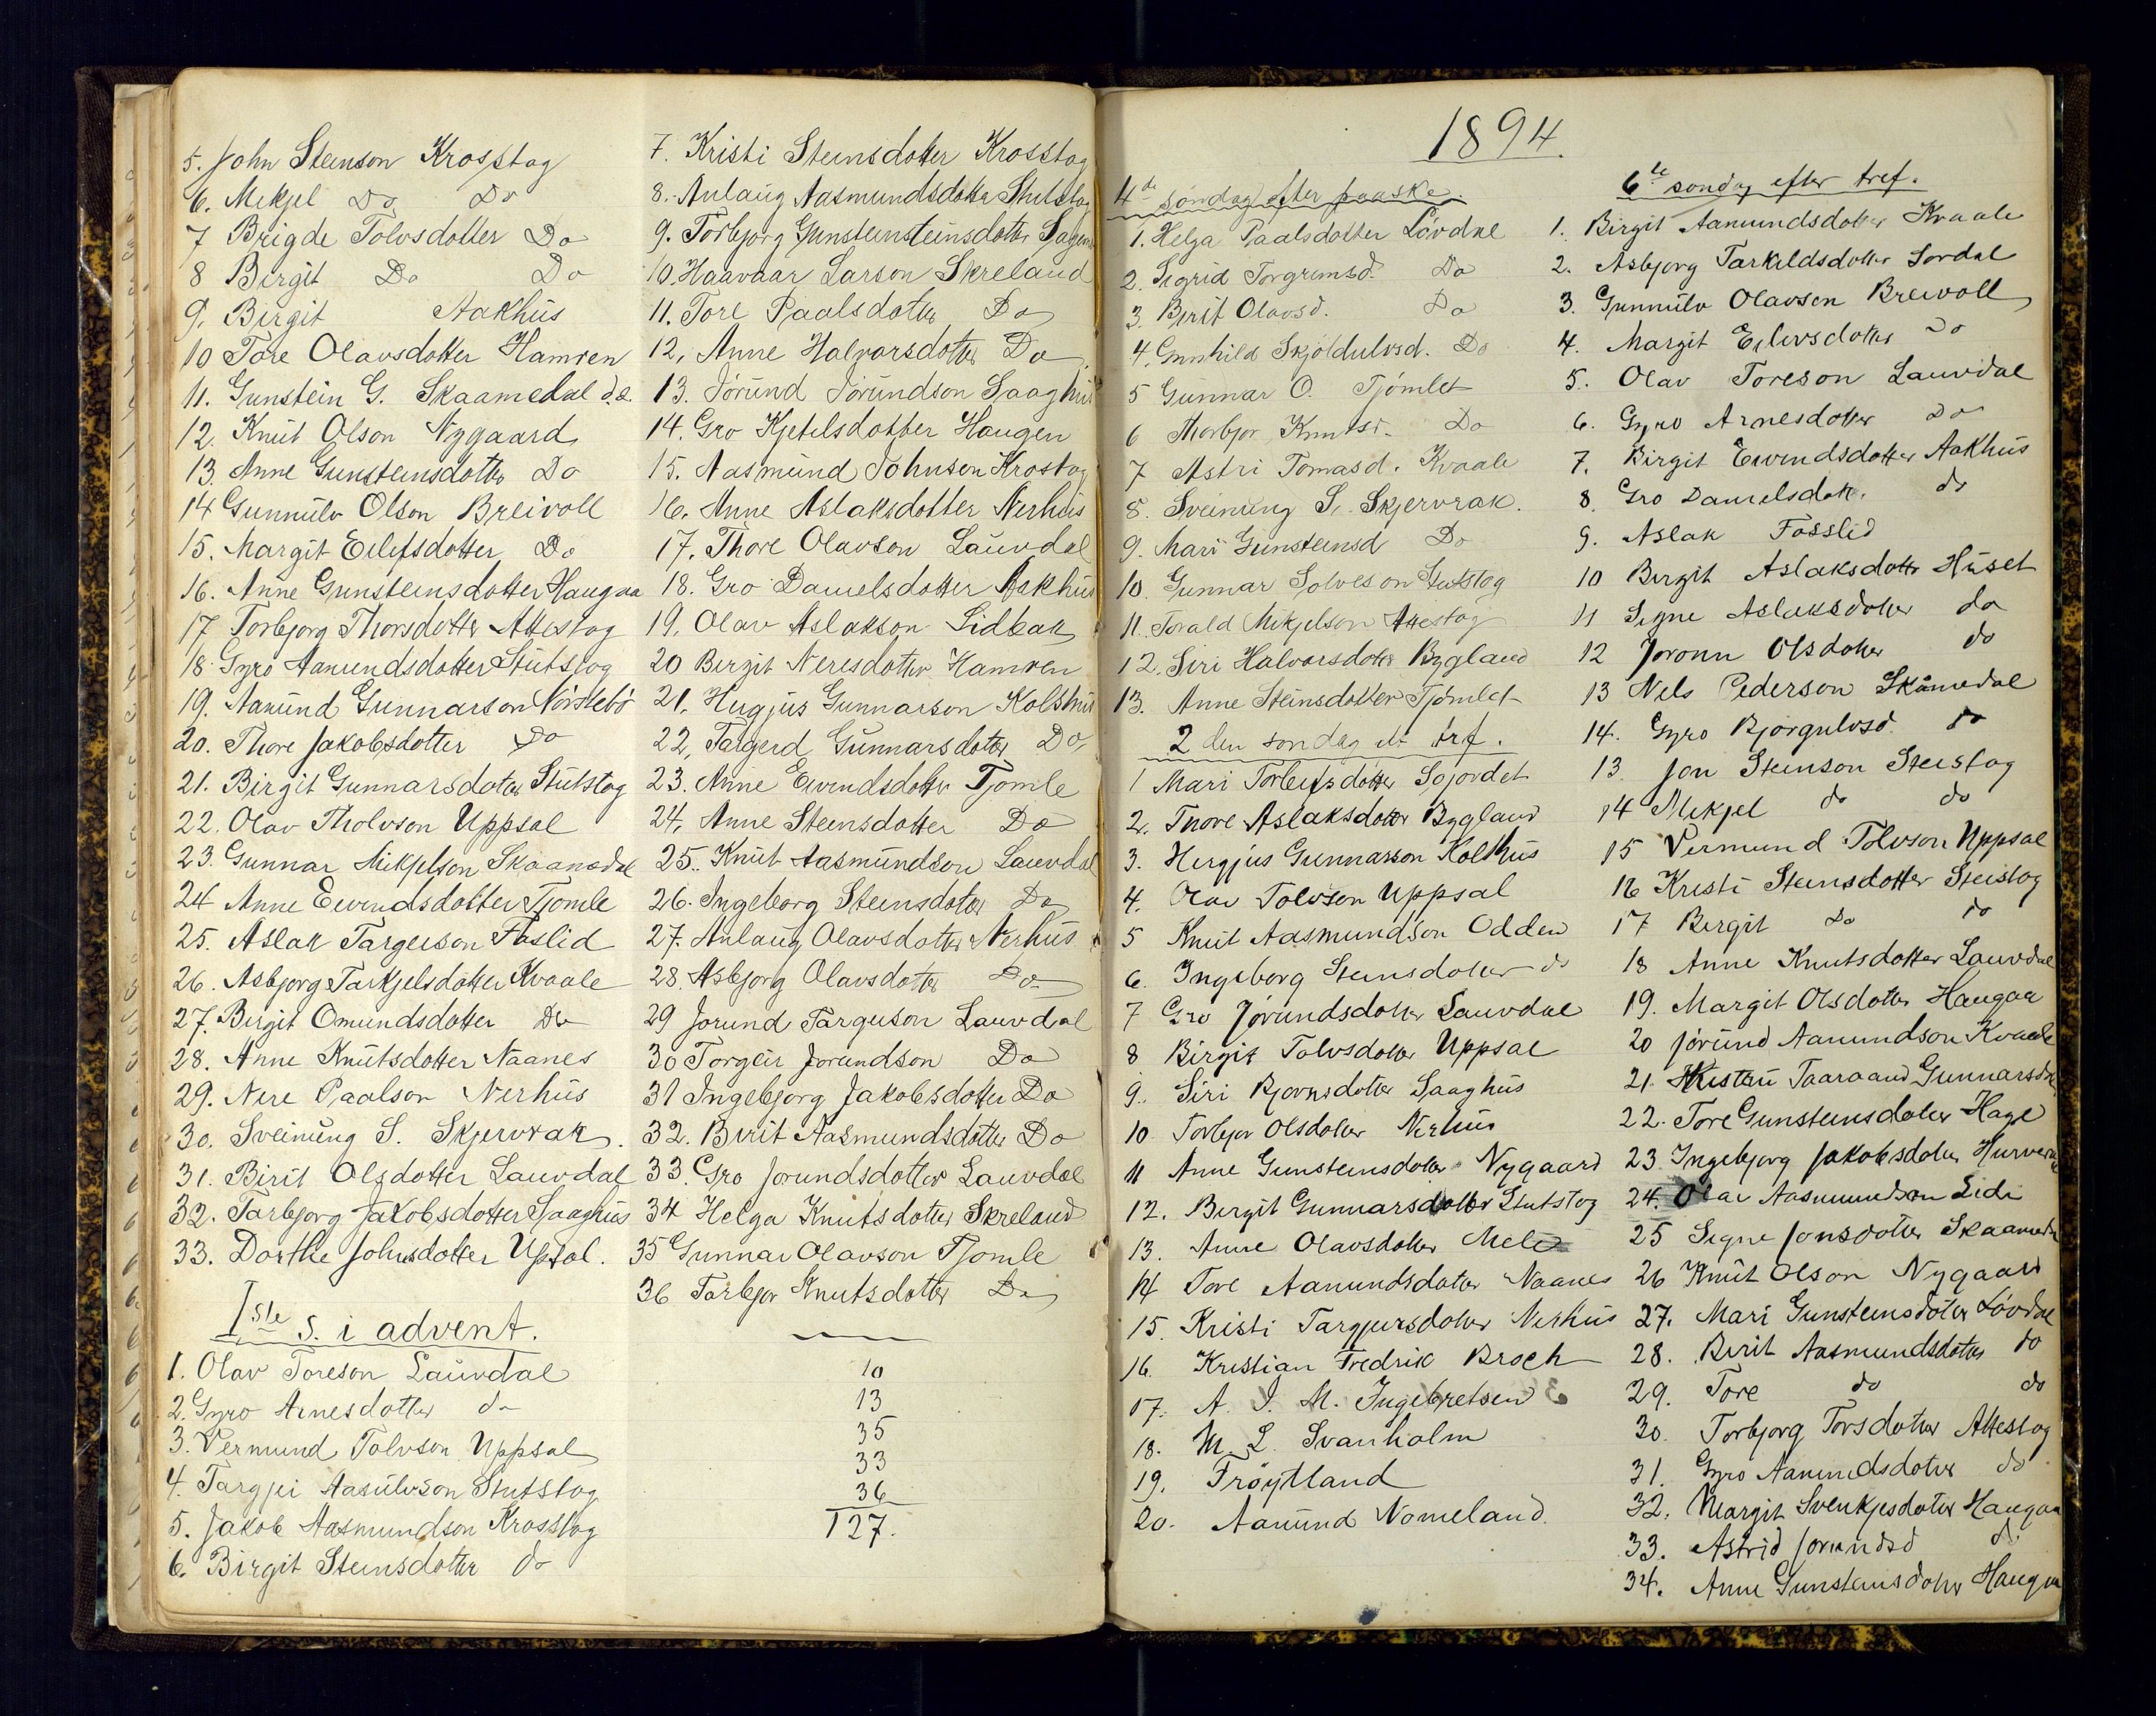 5. John Steinson Krosstog
6. Mekjel Do Do
7 Brigde Tolvsdotter Do
8 Birgit Do Do
9. Birgit Aakhus
10 Tore Olavsdotter Hamren
11. Gunstein G. Skaamedal d.e.
12. Knut Olson Nygaard
13. Anne Gunsteinsdotter Do
14 Gunnulv Olson Breivoll
15. Margit Eilefsdotter Do
16. Anne Gunsteinsdotter Haugaa
17 Torbjorg Thorsdotter Attestog
18. Gyro Aamundsdotter Stutstog
19. Aamund Gunnarson Nörstebö
20. Thore Jakobsdotter Do
21. Birgit Gunnarsdotter Stutstog
22. Olav Tholvson Uppsal
23. Gunnar Mikjelson Skaamedal
24 Anne Eivindsdotter Tjomle
25. Aslak Targeison Faslid
26. Asbjorg Tarkjelsdotter Kvaale
27. Birgit Omundsdotter Do
28. Anne Knutsdotter Naanes
29. Nere Paalson Nerhus
30. Sveinung S. Skjervrak.
31. Birit Olsdotter Lauvdal
32. Tarbjorg Jakobsdotter Saaghus
33. Dorthe Johnsdotter Upsal.
Iste S. i advent.
1. Olav Toreson Lauvdal
2. Gyro Arnesdotter do
3. Vermund Tolvson Uppsal
4. Targjei Aasulvson Stutstog
5. Jakob Aasmundson Krosstog
6. Birgit Steinsdotter do
7. Kristi Steinsdotter Krosstog
8. Anlaug Aasmundsdotter Stutstog
9. Torbjorg Gunsteinsteinsdotter Sagens
10. Haavaar Larson Skreland
11. Tore Paalsdotter Do
12. Anne Halvorsdotter Do
13. Jörund Jörundson Saaghus
14. Gro Kjetelsdotter Haugen
15. Aasmund Johnson Krostog
16. Anne Aslaksdotter Nerhus
17. Thore Olavson Lauvdal
18. Gro Danielsdotter Aakhus
19. Olav Aslakson Lidbak
20 Birgit Neresdotter Hamren
21. Hugjus Gunnarson Kolshus
22. Targerd Gunnarsdotter Do
23. Anne Eivindsdotter Tjomle
24. Anne Steinsdotter Do
25. Knut Aasmundson Lauvdal
26. Ingeborg Steinsdotter Do
27. Anlaug Olavsdotter Nerhus
28. Asbjorg Olavsdotter Do
29 Jorund Targuson Lauvdal
30 Torgeir Jorundson Do
31 Ingebjorg Jakobsdotter Do
32. Birit Aasmundsdotter Do
33. Gro Jorundsdotter Lauvdal
34 Helga Knutsdotter Skreland
35 Gunnar Olavson Tjomle
36 Tarbjor Knutsdotter Do
10
13
35
33
36
127.
1894.
4de söndag efter paaske.
1. Helga Paalsdotter Lövdal
2. Sigrid Torgrimsd. Do
3. Birit Olavsd. Do
4. Gunhild Skjöldulvsd. Do
5 Gunnar O. Tjömlet
6 Thorbjor Knutsd. Do
7 Astri Tomasd. Kvaale
8. Sveinung S. Skjervrak.
9. Mari Gunsteinsd Do
10. Gunnar Solveson Stutstog
11. Torald Mikjelson Attestog
12. Siri Halvorsdotter Bygland
13. Anne Steinsdotter Tjömlet
2den sondag ef tref.
1 Mari Torleifsdotter Sojordet
2. Thore Aslaksdotter Bygland
3. Hergjus Gunnarson Kolthus
4. Olav Tolvson Uppsal
5 Knut Aasmundson Odden
6. Ingeborg Steinsdotter do
7 Gro Jörundsdotter Lauvdal
8 Birgit Tolvsdotter Uppsal
9. Siri Bjornsdotter Saaghus
10. Torbjor Olsdotter Nerhus
11 Anne Gunsteinsdotter Nygaard
12. Birgit Gunnarsdotter Stutstog
13. Anne Olavsdotter Mele
14 Tore Aamundsdotter Naanes
15. Kristi Targjersdotter Nerhus
16. Kristian Fredrik Broch
17. A. I. M. Ingebretsen
18. M. L. Svanholm
19. Fröytland
20. Aanund Nomeland.
6te sondag efter tref.
1. Birgit Aamundsdotter Kvaale
2. Asbjorg Tarkildsdotter Lordal
3. Gunnulv Olavson Breivoll
4. Margit Eilevsdotter Do
5. Olav Toreson Lauvdal
6. Gyro Arnesdotter Do
7. Birgit Eivindsdotter Aakhus
8. Gro Danielsdott. do
9. Aslak Fosslid
10 Birgit Aslaksdotter Huset
11 Signe Aslaksdotter do
12 Joronn Olsdotter do
13 Nils Pederson Skåmedal
14. Gyro Bjorgulvsd. do
13. Jon Steinson Steistog
14 Mikjel do do
15 Vermund Tolvson Uppsal
16 Kristi Steinsdotter Steistog
17 Birgit Do do
18 Anne Knutsdotter Lauvdal
19. Margit Olsdotter Haugaa
20 Jörund Aamundson Kvaale
21. Taaraand Gunnarsdo
22. Tore Gunsteinsdotter Hage
23. Ingebjorg Jakobsdotter
24. Olav Aasmundson Lidi
25 Signe Jonsdotter Skaamed
26 Knut Olson Nygaard
27. Mari Gunsteinsdotter Lövdal
28. Birit Aasmundsdotter do
29. Tore do do
30. Torbjorg Torsdotter Attestog
31. Gyro Aanundsdotter do
32. Margit Sveukjesdotter Haugaa
33. Astrid Jorundsd do
34. Anne Gunsteinsdotter Haugaa